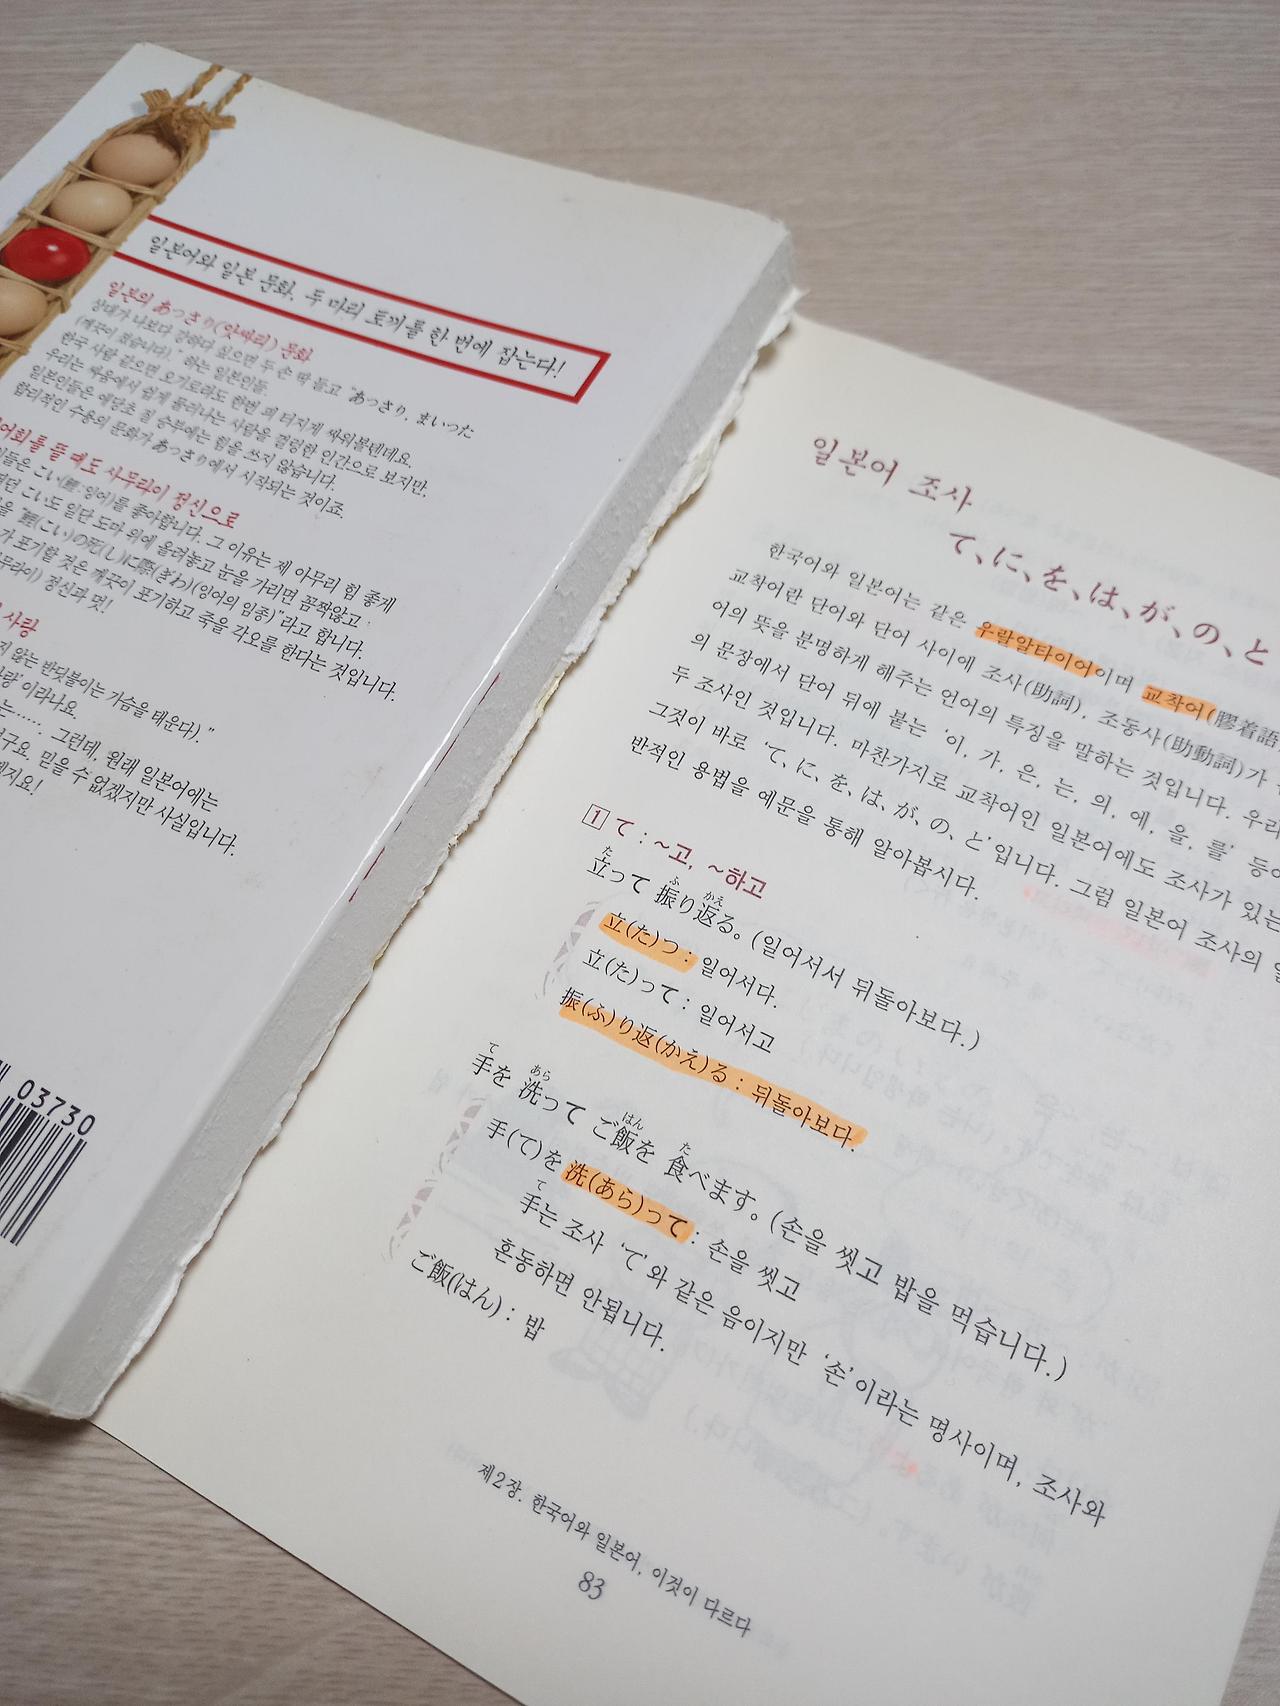 일본어와 일본 문화, 두 마리 토끼를 한 번에 잡는다!
일본의 あっさり(앗싸리) 문화
상대가 나보다 강하다 싶으면 두 손 딱 들고 "あっさり, まいった
(깨끗이 졌습니다)" 하는 일본인들.
한국 사람 같으면 오기로라도 한번 피 터지게 싸워볼텐데요.
우리는 싸움에서 쉽게 물러나는 사람을 결렁한 인간으로 보지만,
일본인들은 애당초 질 승부에는 힘을 쓰지 않습니다.
합리적인 수용의 문화가 あっさり에서 시작되는 것이죠.
회를 뜰 때도 사무라이 정신으로
들은 こい(鯉·잉어)를 좋아합니다. 그 이유는 제 아무리 힘 좋게
던 こい도 일단 도마 위에 올려놓고 눈을 가리면 꼼짝않고
을 "鯉(こい)の死(し)に際(ぎわ)(잉어의 임종)"라고 합니다.
가 포기할 것은 깨끗이 포기하고 죽을 각오를 한다는 것입니다.
무라이) 정신과 멋!
사랑
지 않는 반딧불이는 가슴을 태운다)."
사랑'이라나요.
는..... 그런데, 원래 일본어에는
구요. 믿을 수 없겠지만 사실입니다.
지요!
03730
일본어 조사
て、に、を、は、が、の、と
한국어와 일본어는 같은 우랄알타이어이며 교착어(膠着語
교착어란 단어와 단어 사이에 조사(助詞), 조동사(助動詞)가
어의 뜻을 분명하게 해주는 언어의 특징을 말하는 것입니다. 우리
의 문장에서 단어 뒤에 붙는 '이, 가, 은, 는, 의, 에, 을, 를' 등이
두 조사인 것입니다. 마찬가지로 교착어인 일본어에도 조사가 있는
그것이 바로 'て, に, を, は, が, の, と'입니다. 그럼 일본어 조사의 일
반적인 용법을 예문을 통해 알아봅시다.
1 て : ~고, ~하고
た ふ かえ
立って 振り返る。(일어서서 뒤돌아보다.)
立(た)つ : 일어서다.
立(た)って : 일어서고
振(ふ)り返(かえ)る : 뒤돌아보다.
て あら はん た
手を 洗って ご飯を 食べます。(손을 씻고 밥을 먹습니다.)
手(て)を 洗(あら)って : 손을 씻고
て
手는 조사 'て'와 같은 음이지만 '손'이라는 명사이며, 조사와
혼동하면 안됩니다.
ご飯(はん) : 밥
제2장. 한국어와 일본어, 이것이 다르다
83